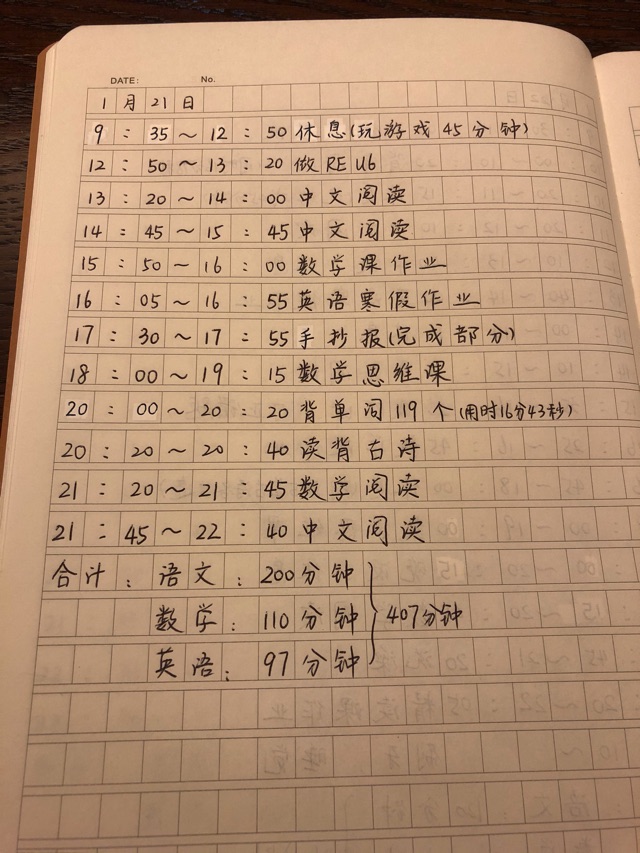 DATE: No.
1月21日
9:35～12:50休息(玩游戏45分钟)
12:50～13:20做RE U6
13:20～14:00中文阅读
14:45～15:45中文阅读
15:50～16:00数学课作业
16:05～16:55英语寒假作业
17:30～17:55手抄报(完成部分)
18:00～19:15数学思维课
20:00～20:20背单词119个(用时16分43秒)
20:20～20:40读背古诗
21:20～21:45数学阅读
21:45～22:40中文阅读
合计:语文:200分钟
数学:110分钟 407分钟
英语:97分钟